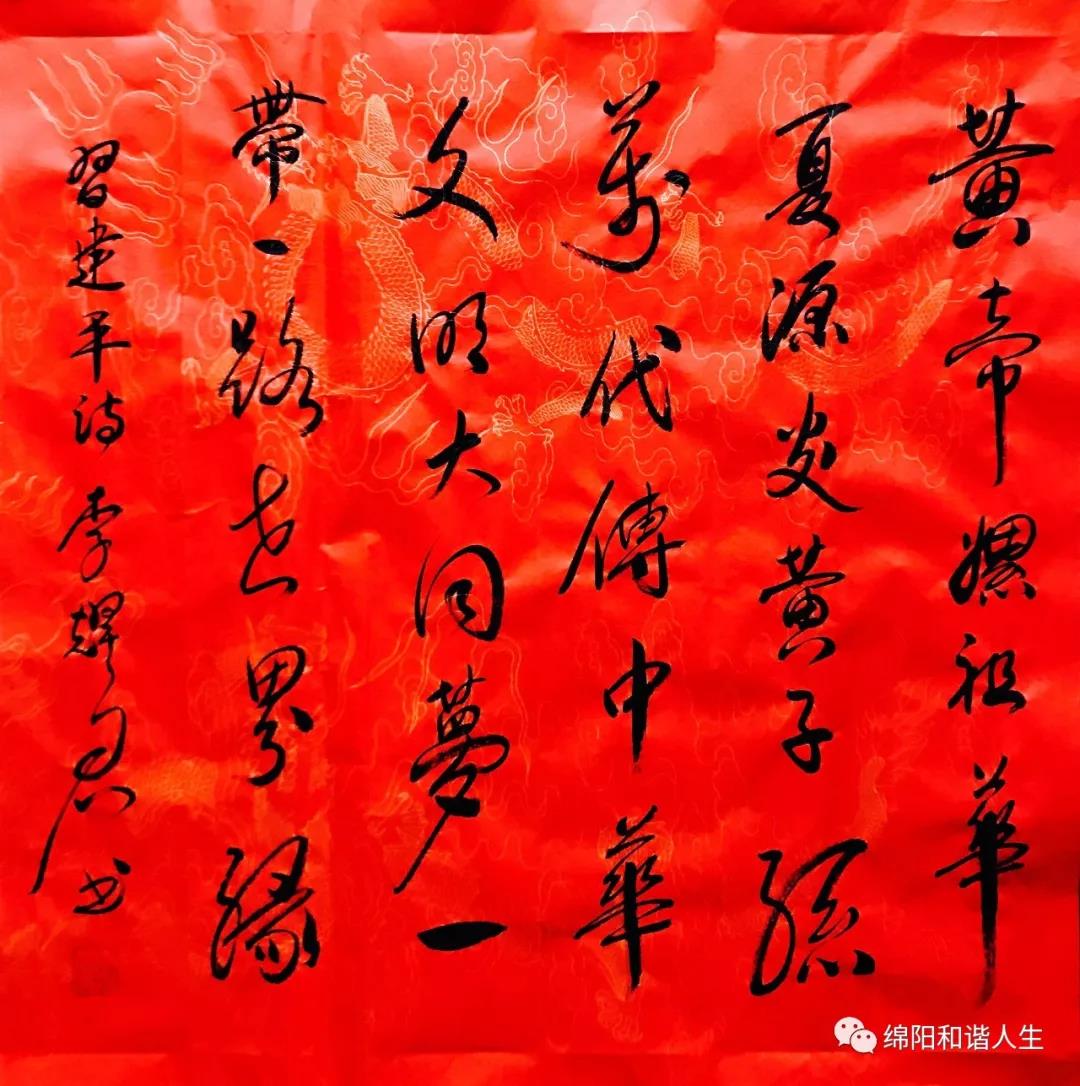 黄帝嫘祖華
夏源炎黄子孫
萬代傳中華
文明大同夢一
帶一路世界緣
習建平诗李耀君书
绵阳和谐人生